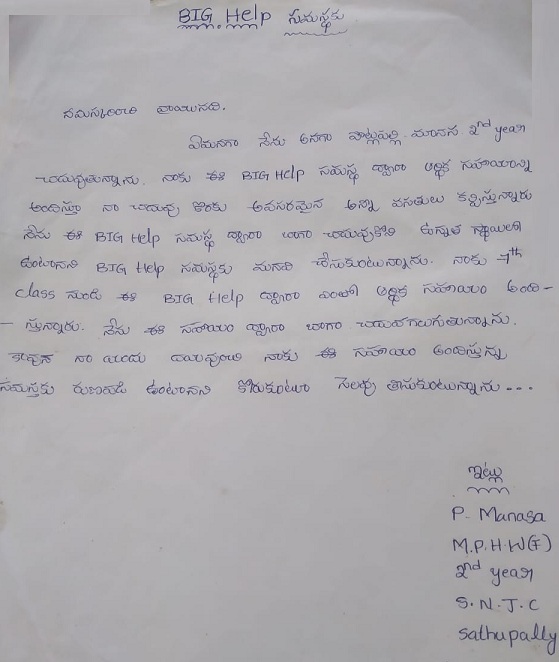 BIG Help సమస్థకు
నమస్కరించి వ్రాయునది.
ఏమనగా నేను అనగా పొట్లపల్లి మానస 2nd year
చదువుతున్నాను. నాకు ఈ BIG Help సమస్థ ద్వారా ఆర్థిక సహాయాన్ని
అందిస్తూ నా చదువు కొరకు అవసరమైన అన్ని వసతులు కల్పిస్తున్నారు
నేను ఈ BIG Help సమస్థ ద్వారా బాగా చదువుకొని ఉన్నత స్థాయిలో
ఉంటానని BIG Help సమస్థకు మనవి చేసుకుంటున్నాను. నాకు 7th
class నుండి ఈ BIG Help ద్వారా ఎంతో ఆర్థిక సహాయం అంది-
- స్తున్నారు. నేను ఈ సహాయం ద్వారా బాగా చదువగలుగుతున్నాను.
కావున నా యందు దయవుంచి నాకు ఈ సహాయం అందిస్తున్న
సమస్థకు రుణపడి ఉంటానని కోరుకుంటూ సెలవు తీసుకుంటున్నాను ---
ఇట్లు
P. Manasa
M.P.H.W(F)
2nd year
S.N.J.C
Sathupally